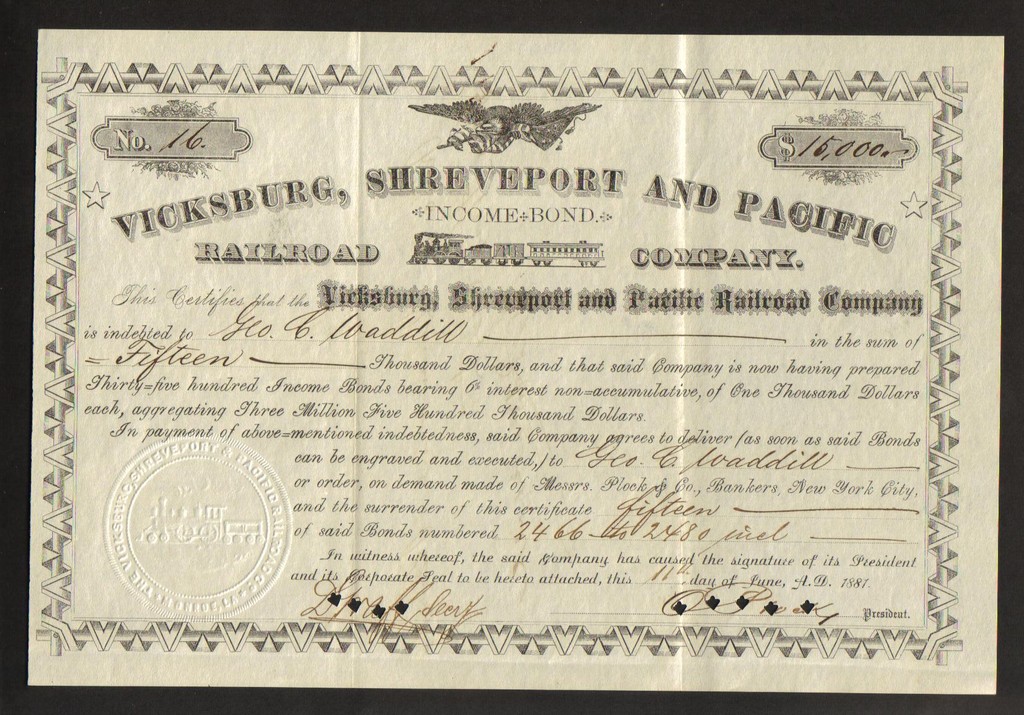 No. 16.
$15,000.
VICKSBURG, SHREVEPORT AND PACIFIC
INCOME BOND.
RAILROAD COMPANY.
This Certifies that the Vicksburg, Shreveport and Pacific Railroad Company
is indebted to Geo. C. Waddill in the sum of
= Fifteen Thousand Dollars, and that said Company is now having prepared
Thirty=five hundred Income Bonds bearing 6% interest non=accumulative, of One Thousand Dollars
each, aggregating Three Million Five Hundred Thousand Dollars.
In payment of above=mentioned indebtedness, said Company agrees to deliver (as soon as said Bonds
can be engraved and executed,) to Geo. C. Waddill
or order, on demand made of Messrs. Plock & Co., Bankers, New York City,
and the surrender of this certificate fifteen
of said Bonds numbered 2466 to 2480 incl
In witness whereof, the said Company has caused the signature of its President
and its Corporate Seal to be hereto attached, this 11th day of June, A.D. 1881.
Secy
President.
THE VICKSBURG, SHREVEPORT & PACIFIC RAILROAD CO.